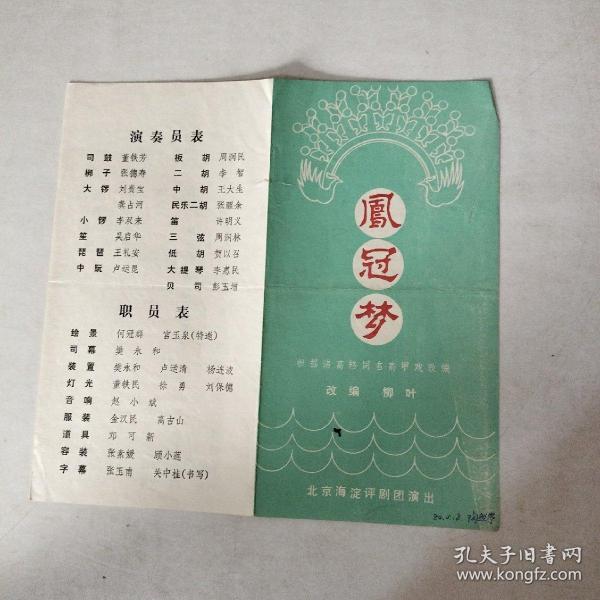 演奏员表
司鼓 董铁芳 板胡 周润民
梆子 张德寿 二胡 李智
大锣 刘贵宝 中胡 王大生
娄占河 民乐二胡 张醒余
小锣 李双来 笛 许明义
笙 吴启华 三弦 周润林
琵琶 王礼安 低胡 贺以召
中阮 卢运昆 大提琴 李惠民
贝司 彭玉增
职员表
绘景 何冠群 宫玉泉(特邀)
司幕 樊永和
装置 樊永和 卢送清 杨连波
灯光 董铁民 徐勇 刘保德
音响 赵小斌
服装 金汉民 高古山
道具 邓可新
容装 张素媛 顾小莲
字幕 张玉南 关中桂(书写)
鳳冠梦
根据 同名高甲戏改编
改编 柳叶
北京海淀评剧团演出
孔夫子旧书网
www.kongfz.com